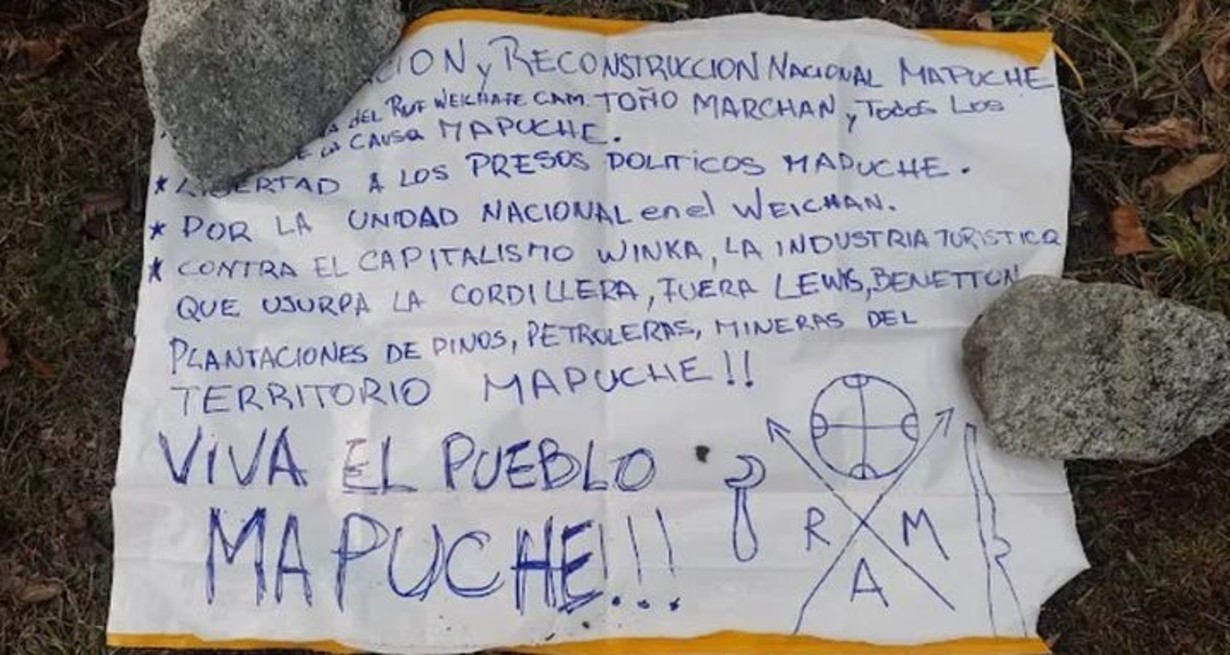 CION y RECONSTRUCCION NACIONAL MAPUCHE
DEL WEICHAFE CAM. TOÑO MARCHAN y TODOS LOS
LA CAUSA MAPUCHE.
* LIBERTAD A LOS PRESOS POLITICOS MAPUCHE.
* POR LA UNIDAD NACIONAL en el WEICHAN.
* CONTRA EL CAPITALISMO WINKA, LA INDUSTRIA TURISTICA
QUE USURPA LA CORDILLERA, FUERA LEWIS, BENETTON
PLANTACIONES DE PINOS, PETROLERAS, MINERAS DEL
TERRITORIO MAPUCHE!!
VIVA EL PUEBLO
MAPUCHE!!!
R M
A